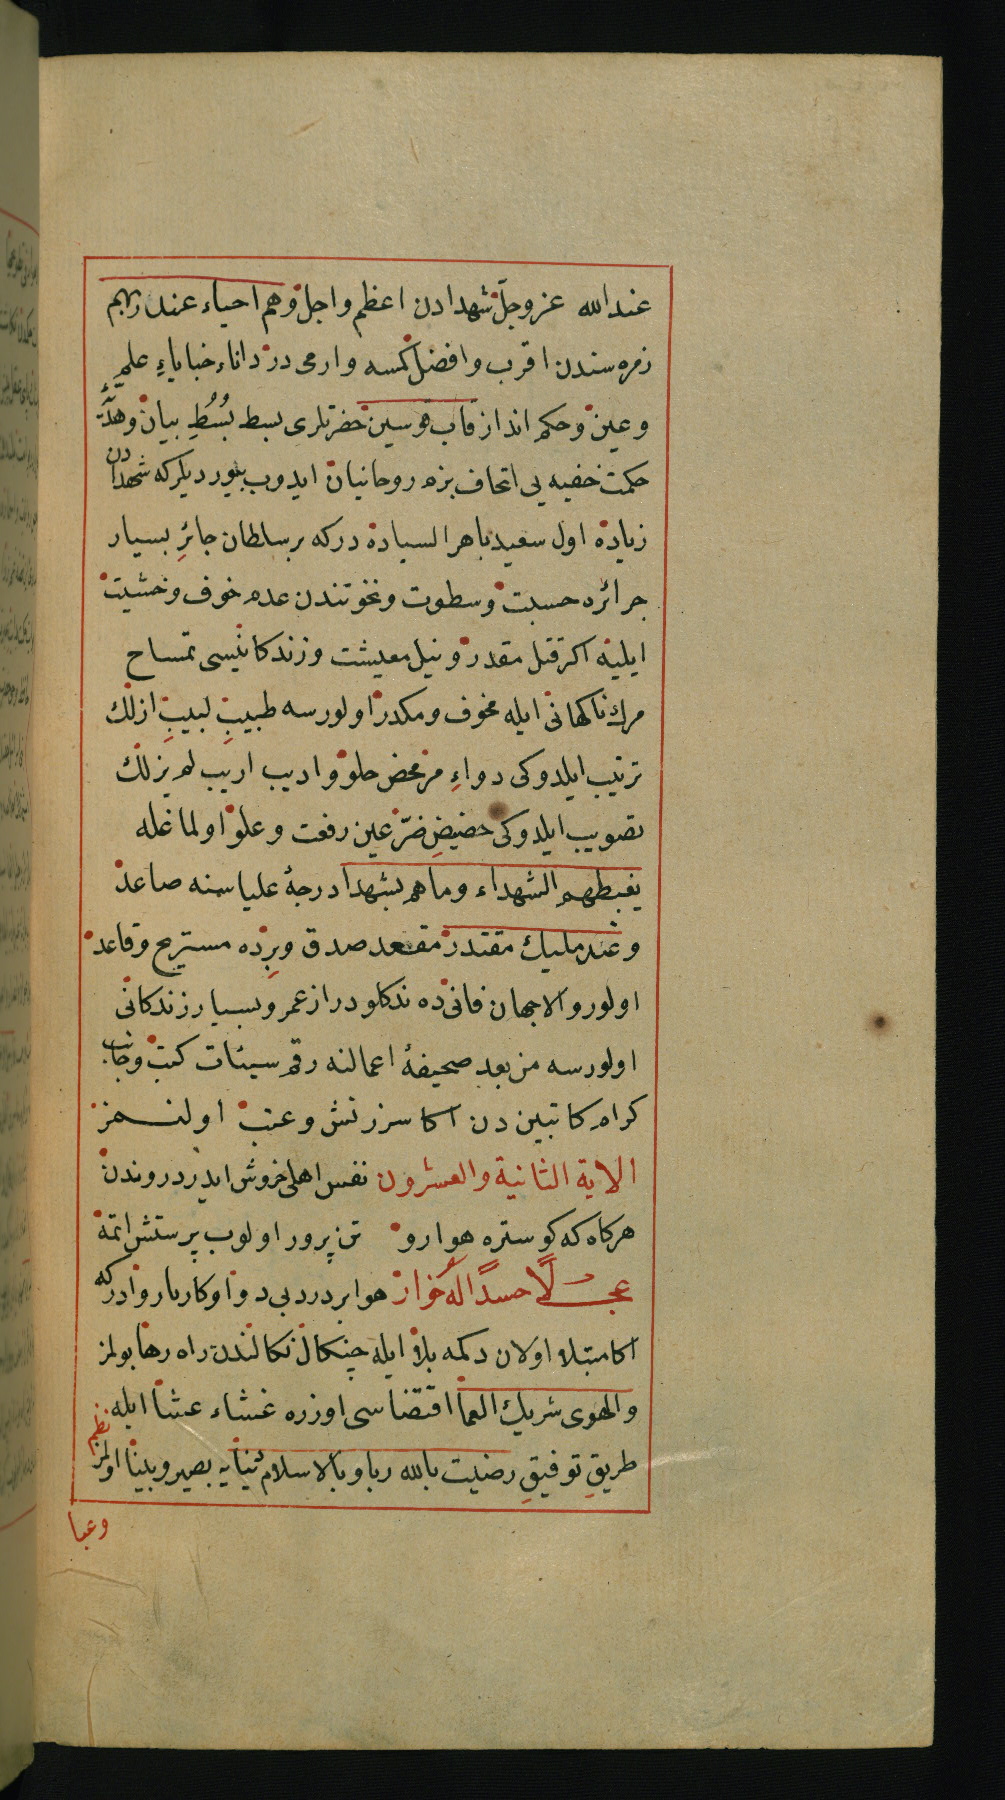 عندالله عز وجلّ شهدادن اعظم و اجل وهم احياء عند ربهم
زمره سندن اقرب و افضل كمسه وارمى در داناء خباياءِ علم
و عين و حكم انداز قاب قوسين حضرتلرى بسط بُسُطِ بيان و
حكمت خفيه يى اتحاف بزم روحانيان ايدوب بيورديلركه شهدادن
زياده اول سعيد باهر السياده دركه بر سلطان جائرِ بسيار
جرائره حسبت و سطوت و نخوتندن عدم خوف و خشيت
ايلينه اكر قتل مقدر و نيل معيشت و زندكانيسى تمساح
مرك ناكهانى ايله مخوف و مكدر اولورسه طبيبِ لبيبِ ازلك
ترتيب ايلدوكى دواءِ مر محض حلو و اديب اريب لم يزلك
تصويب ايلدوكى حضيضِ ضرّ عين رفعت و علو اولماغله
يغبطهم الشهداء وما هم بشهدا درجهٔ علياسنه صاعد
و عند مليك مقتدر مقعد صدق و برده مستريح و قاعد
اولور و الا جهان فانى ده ندكلو دراز عمر و بسيار زندكانى
اولورسه من بعد صحيفهٔ اعمالنه رقم سيئات كتب و جانب
كرام كاتبين دن اكا سرزنش و عتب اولنمز
الاية الثانية والعشرون نفس اهلى خروش ايدر دروندن
هركاه كه كوستره هوا رو تن پرور اولوب پرستش اتمه
عجلا جسدًا له خوار هوا بر درد بى دوا و كاربار وادركه
اكا مبتلا اولان دكمه بلا ايله چنكال نكالندن راه رها بولمز
والهوى شريك العما اقتضاسى اوزره غشاء عشا ايله
طريقِ توفيقِ رضيت بالله ربا و بالاسلام دينايه بصير و بينا اولمز
نظم
وعبا